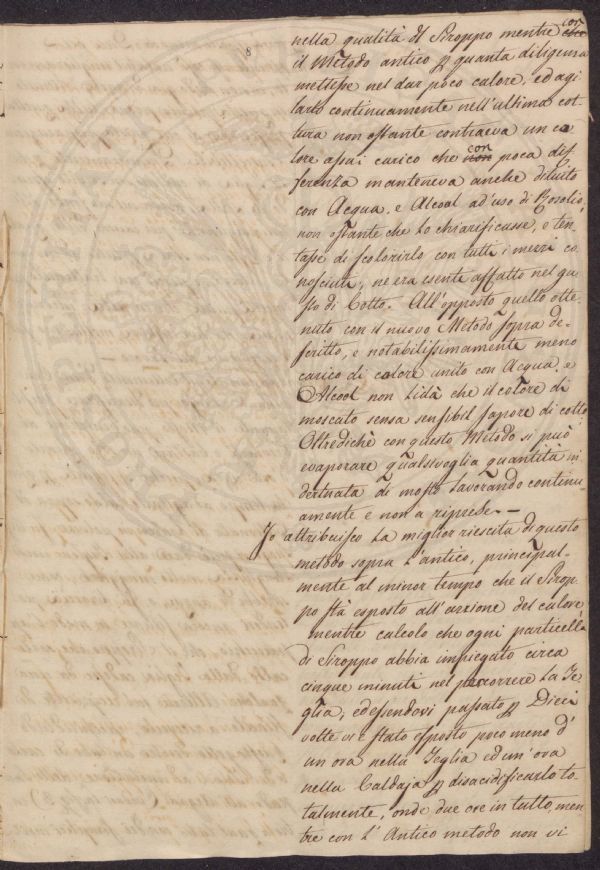 8
nella qualità dl Siroppo mentre con
il Metodo antico p quanta diligenza
mettesse nel dar poco calore, ed agi
tarlo continuamente nell'ultima cot
tura non ostante contraeva un co
lore assai carico che con poca dif
ferenza manteneva anche diluito
con Acqua, e Alcool ad'uso di Rosolio,
non ostante che Lo chiarificasse, e ten-
tasse di scolorirlo con tutti i mezzi co
nosciuti, ne era esente affatto nel gu
sto di Cotto. All'opposto quello otte
nuto con il nuovo Metodo sopra de-
scritto, e notabilissimamente meno
carico di colore unito con Acqua, e
Alcool non Lidà che il colore di
moscato sensa sensibil sapore di cotto
Oltrediché con questo Metodo si può
evaporare qualsivoglia quantità in
dertnata di mosto Lavorando continu
amente e non a riprese.—
Io attribuisco La miglior riescita di questo
metodo sopra L'antico, principal-
mente al minor tempo che il Sirop-
po stà esposto all'azzione del calore
mentre calcolo che ogni particella
di Siroppo abbia impiegato circa
cinque minuti nel percorrere La Te
glia, ed essendovi passato p Dieci
volte vi è stato esposto poco meno d'
un ora nella Teglia ed un'ora
nella Caldaja p disacidificarlo to-
talmente, onde due ore in tutto, men
tre con L'Antico metodo non vi